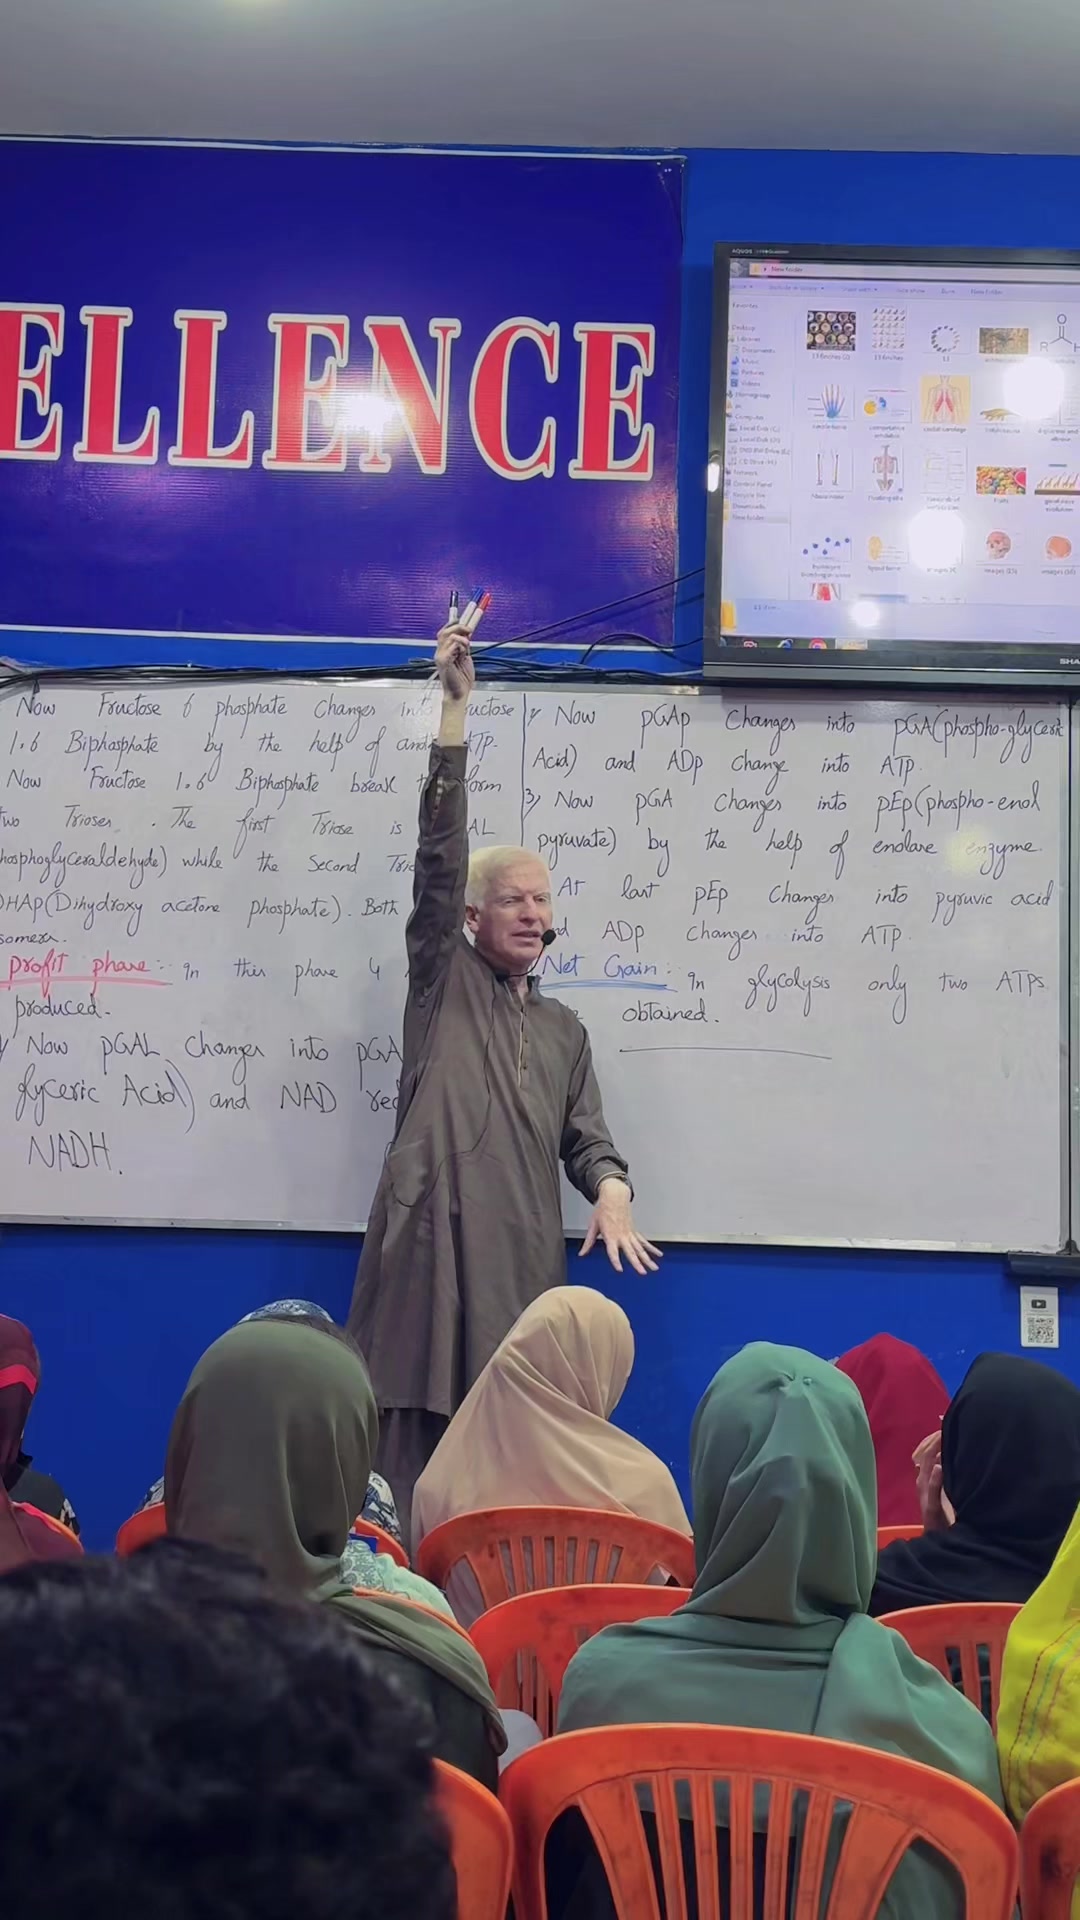 ELLENCE
AQUOS
New folder
Favorites
Desktop
Libraries
Documents
Music
Pictures
Videos
Homegroup
Computer
Network
Control Panel
Recycle Bin
Downloads
New folder
SHA
Now Fructose 6 phosphate Changes into ructose
1.6 Biphosphate by the help of and ATP.
Now Fructose 1.6 Biphosphate break t form
wo Trioses. The first Triose is AL
hosphoglyceraldehyde) while the Second Trio
DHAp(Dihydroxy acetone phosphate). Both
somers.
Profit phase:- In this phase 4
produced.
Now pGAL Changes into pGA
glyceric Acid) and NAD red
NADH.
Now pGAp Changes into pGA(phospho-glyceric
Acid) and ADp Change into ATP.
3) Now pGA Changes into pEp(phospho-enol
pyruvate) by the help of enolase enzyme.
At last pEp Changes into pyruvic acid
nd ADp changes into ATP.
Net Gain:- In glycolysis only two ATPs
obtained.